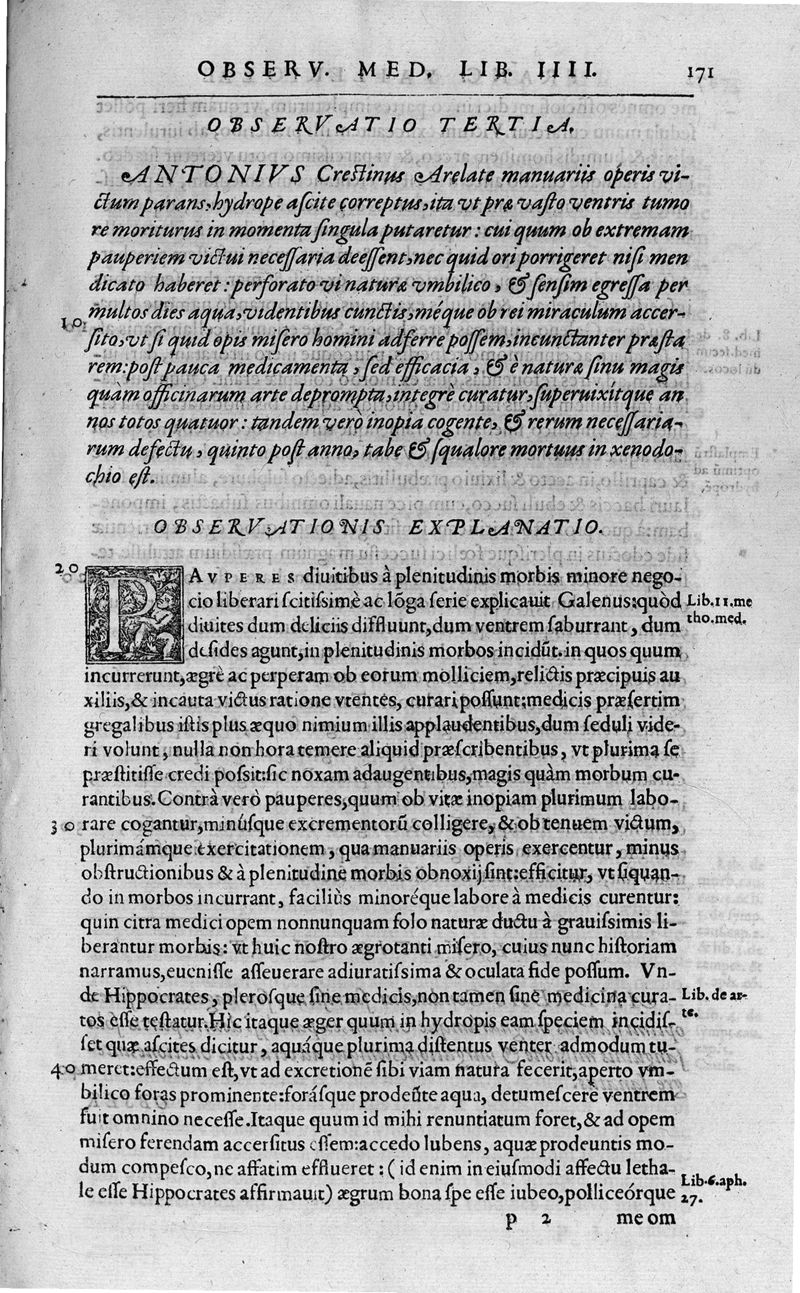 OBSERV. MED. LIB. IIII. 171
OBSERVATIO TERTIA.
ANTONIVS Crestinus Arelate manuariis operis vi-
ctum parans, hydrope ascite correptus, ita vt præ vasto ventris tumo
re moriturus in momenta singula putaretur: cui quum ob extremam
pauperiem victui necessaria deessent, nec quid ori porrigeret nisi men
dicato haberet: perforato vi naturæ vmbilico, & sensim egressa per
multos dies aqua, videntibus cunctis, méque ob rei miraculum accer-
10 sito, vt si quid opis misero homini adferre possem, incunctanter præsta
rem: post pauca medicamenta, sed efficacia, & è naturæ sinu magis
quàm officinarum arte deprompta, integrè curatur, superuixítque an
nos totos quatuor: tandem verò inopia cogente, & rerum necessaria-
rum defectu, quinto post anno, tabe & squalore mortuus in xenodo-
chio est.
OBSERVATIONIS EXPLANATIO.
20 PAVPERES diuitibus à plenitudinis morbis minore nego-
cio liberari scitissimè ac lõga serie explicauit Galenus: quòd Lib.11.me
diuites dum deliciis diffluunt, dum ventrem saburrant, dum tho.med.
desides agunt, in plenitudinis morbos incidũt. in quos quum
incurrerunt, ægrè ac perperam ob eorum molliciem, relictis præcipuis au
xiliis, & incauta victus ratione vtentes, curari possunt: medicis præsertim
gregalibus istis plus æquo nimium illis applaudentibus, dum seduli vide-
ri volunt, nulla non hora temere aliquid præscribentibus, vt plurima se
præstitisse credi possit: sic noxam adaugentibus, magis quàm morbum cu-
rantibus. Contrà verò pauperes, quum ob vitæ inopiam plurimum labo-
30 rare cogantur, minúsque excrementorũ colligere, & ob tenuem victum,
plurimámque exercitationem, qua manuariis operis exercentur, minus
obstructionibus & à plenitudine morbis obnoxij sint: efficitur, vt siquan-
do in morbos incurrant, faciliùs minoréque labore à medicis curentur:
quin citra medici opem nonnunquam solo naturæ ductu à grauissimis li-
berantur morbis: vt huic nostro ægrotanti misero, cuius nunc historiam
narramus, euenisse asseuerare adiuratissima & oculata fide possum. Vn-
de Hippocrates, plerosque sine medicis, non tamen sine medicina cura- Lib. de ar-
tos esse testatur. Hic itaque æger quum in hydropis eam speciem incidis- te.
set quæ ascites dicitur, aquáque plurima distentus venter admodum tu-
40 meret: effectum est, vt ad excretionẽ sibi viam natura fecerit, aperto vm-
bilico foras prominente: forásque prodeũte aqua, detumescere ventrem
fuit omnino necesse. Itaque quum id mihi renuntiatum foret, & ad opem
misero ferendam accersitus essem: accedo lubens, aquæ prodeuntis mo-
dum compesco, ne affatim efflueret: (id enim in eiusmodi affectu letha- Lib.6.aph.
le esse Hippocrates affirmauit) ægrum bona spe esse iubeo, polliceórque 27.
p 2 me om